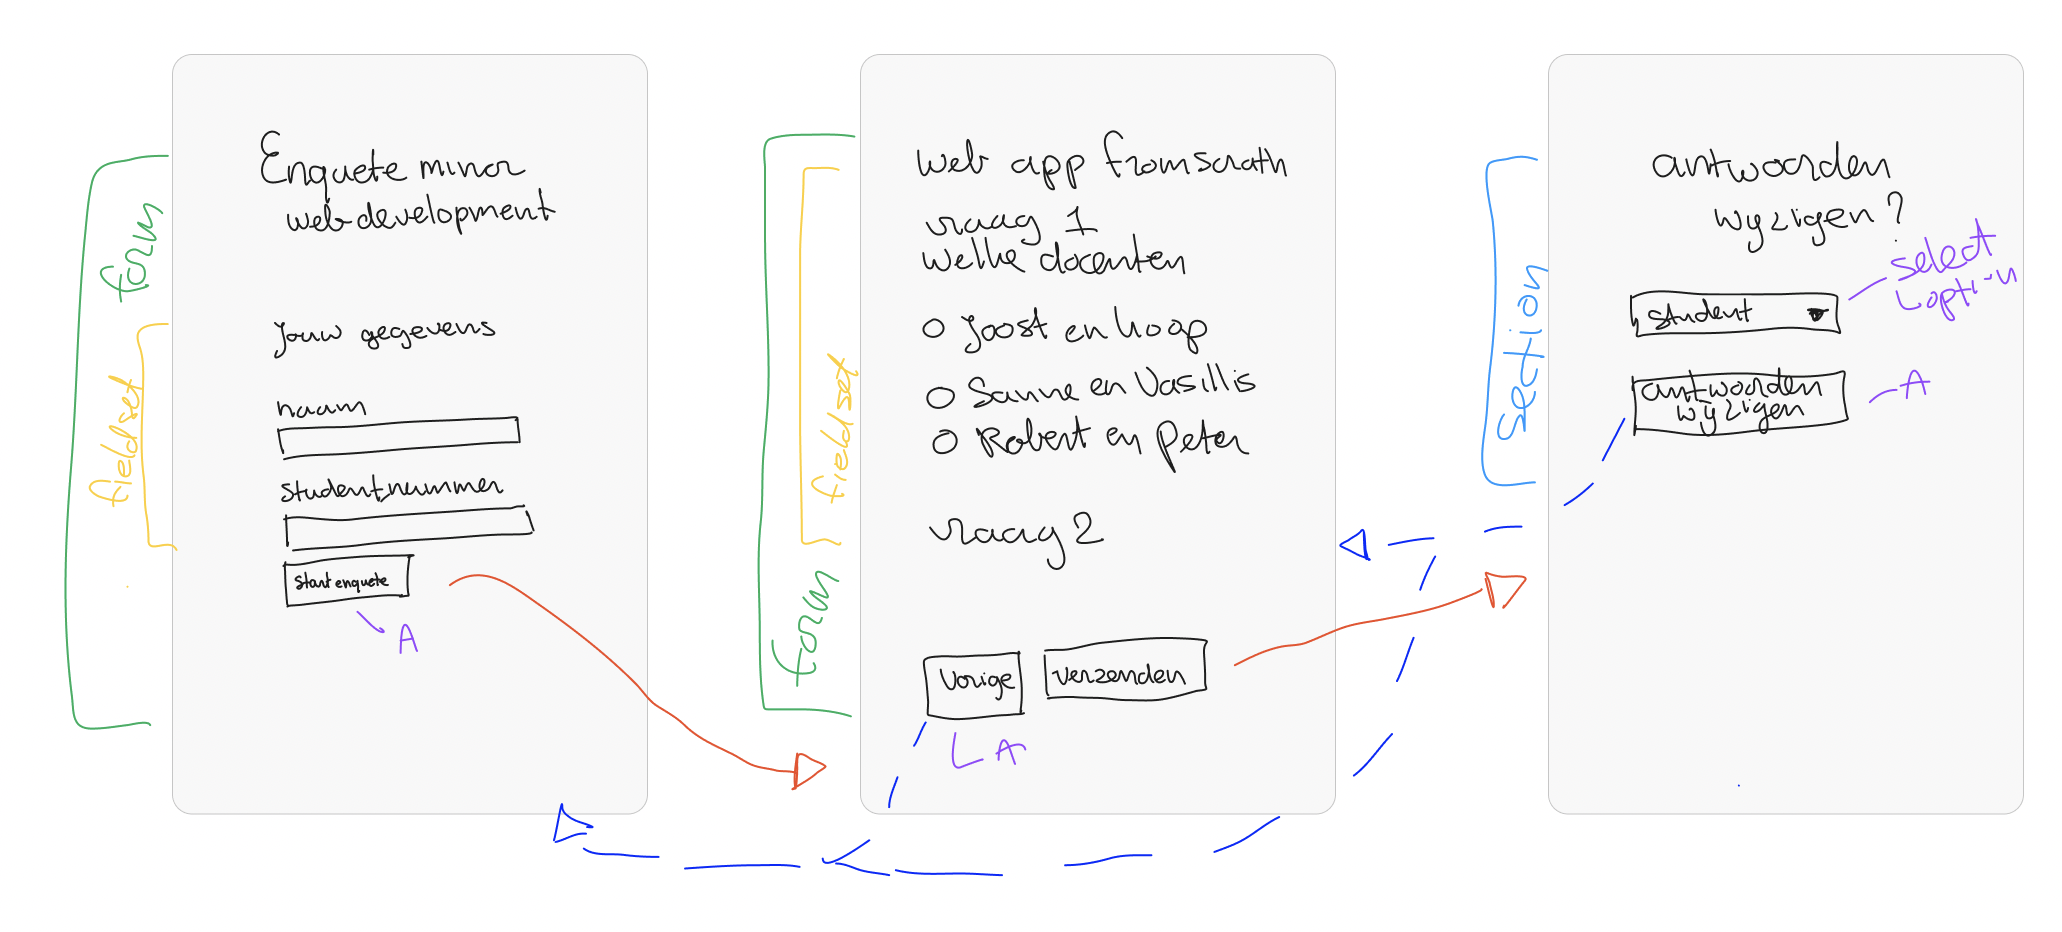 form
fieldset
Enquete minor
web development
Jouw gegevens
naam
studentnummer
start enquete
A
form
fieldset
web app from scrath
vraag 1
welke docenten
Joost en koop
Sanne en Vasillis
Robert en Peter
vraag 2
Vorige
verzenden
A
section
antwoorden
wyzigen?
select
option
student
antwoorden
wyzigen
A